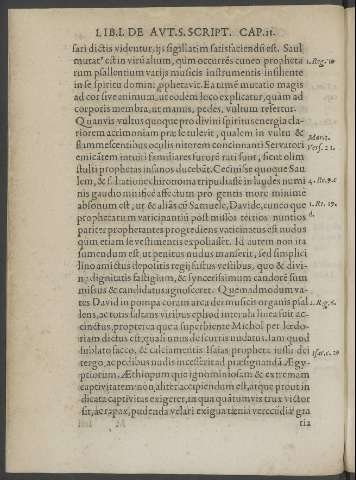 LIB.I. DE AVT.S.SCRIPT. CAP.II.
sari dictis videntur, ijs sigillatim satisfaciendū est. Saul
mutat⁹ est in virū alium, qum occurrēs cuneo propheta
rum psallentium varijs musicis instrumentis insiliente
in se spiritu domini prophetavit. Ea tamē mutatio magis
ad cor sive animum, ut eodem loco explicatur, quàm ad
corporis membra, ut manus, pedes, vultum refertur.
Quanvis vultus quoque pro divini spiritus energia cla-
riorem acrimoniam præ se tulerit, qualem in vultu &
flammescentibus oculis nitorem concinnanti Servatori
emicātem intuiti familiares furore rapi sunt, sicut olim
stulti prophetas insanos ducebāt. Cecinisse quoque Sau
lem, & saltatione chironomia tripudiasse in laudes numi
nis gaudio mirificè affectum pro gentis more minimè
absonum est, ut & aliàs cū Samuele, Davide, cuneoque
prophetarum vaticinantiū post missos tertios nuntios
pariter prophetantes progrediens vaticinatus est nudus
quin etiam se vestimentis expoliasset. Id autem non ita
sumendum est, ut penitus nudus manserit, sed simplici
lino amictus depositis regijs fastus vestibus, quo & divi-
nę dignitatis fastigium, & syncerissimum candorē sum
missus & candidatus agnosceret. Quemadmodum va-
tes David in pompa coram arca dei musicis organis psal
lens, ac totis saltans viribus ephod interula lintea fuit ac-
cinctus, propterea quæ a superbiente Michol per lœdo-
riam dictus est, quasi unus de scurris nudatus. Iam quod
sublato sacco, & calciamentis Isaias propheta iussu dei
tergo, ac pedibus nudis incesserit ad præsignandā Ægy-
ptiorum, Æthiopum que ignominiosam & extremam
captivitatem non aliter accipiendum est, atque prout in
dicata captivitas exigeret, in qua quātumvis trux victor
sit, ac rapax, pudenda velari exigua tænia verecūdiæ gra
tia
1. Reg. 10
Marci.
Vers. 21.
1. Re. 19.
d.
2. Reg. 6.
Isai. c. 20